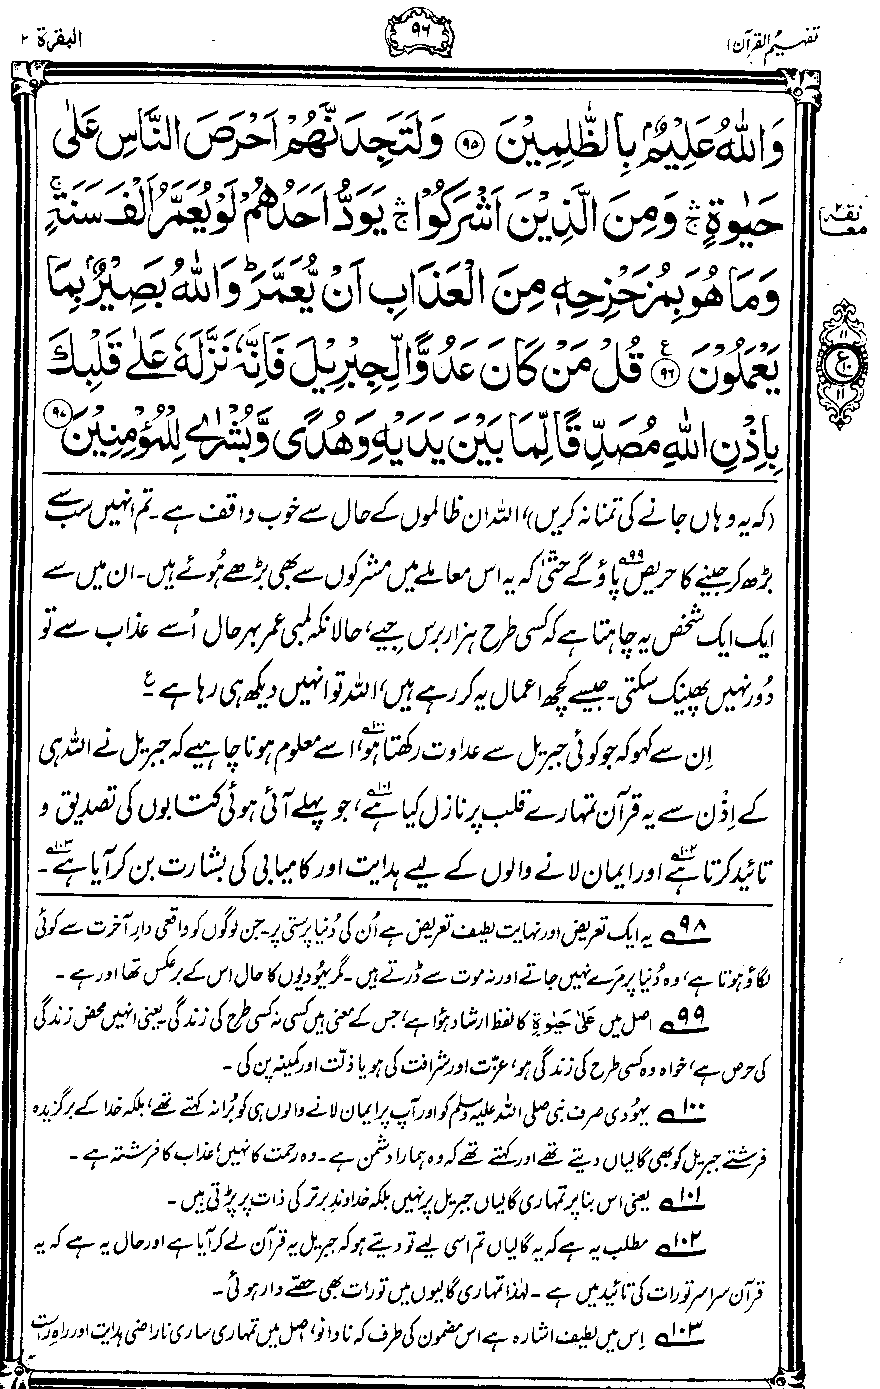 تفہیم القرآن ۱
۹۶
البقرۃ ۲
وَاللّٰهُ عَلِيْمٌۢ بِالظّٰلِمِيْنَ ۹۵ وَلَتَجِدَنَّهُمْ اَحْرَصَ النَّاسِ عَلٰى
حَيٰوةٍ ۛۚ وَمِنَ الَّذِيْنَ اَشْرَكُوْا ۛۚ يَوَدُّ اَحَدُهُمْ لَوْ يُعَمَّرُ اَلْفَ سَنَةٍ ۚ
وَمَا هُوَ بِمُزَحْزِحِهٖ مِنَ الْعَذَابِ اَنْ يُّعَمَّرَ ؕ وَاللّٰهُ بَصِيْرٌۢ بِمَا
يَعْمَلُوْنَ ۹۶ ع قُلْ مَنْ كَانَ عَدُوًّا لِّجِبْرِيْلَ فَاِنَّهٗ نَزَّلَهٗ عَلٰى قَلْبِكَ
بِاِذْنِ اللّٰهِ مُصَدِّقًا لِّمَا بَيْنَ يَدَيْهِ وَهُدًى وَّبُشْرٰى لِلْمُؤْمِنِيْنَ ۹۷
۱۱
ع ۱۰
۱۱
(کہ یہ وہاں جانے کی تمنا نہ کریں)، اللہ ان ظالموں کے حال سے خوب واقف ہے۔ تم انہیں سب سے
بڑھ کر جینے کا حریص۹۹ پاؤ گے حتّٰی کہ یہ اس معاملے میں مشرکوں سے بھی بڑھے ہُوئے ہیں۔ ان میں سے
ایک ایک شخص یہ چاہتا ہے کہ کسی طرح ہزار برس جیے، حالانکہ لمبی عمر بہرحال اُسے عذاب سے تو
دُور نہیں پھینک سکتی۔ جیسے کچھ اعمال یہ کر رہے ہیں، اللہ تو انہیں دیکھ ہی رہا ہے ع
اِن سے کہو کہ جو کوئی جبریل سے عداوت رکھتا ہو۱۰۰، اسے معلوم ہونا چاہیے کہ جبریل نے اللہ ہی
کے اِذْن سے یہ قرآن تمہارے قلب پر نازل کیا ہے۱۰۱، جو پہلے آئی ہوئی کتابوں کی تصدیق و
تائید کرتا ہے۱۰۲ اور ایمان لانے والوں کے لیے ہدایت اور کامیابی کی بشارت بن کر آیا ہے۱۰۳۔
۹۸ یہ ایک تعریض اور نہایت لطیف تعریض ہے اُن کی دُنیا پرستی پر۔ جن لوگوں کو واقعی دارِ آخرت سے کوئی
لگاؤ ہوتا ہے، وہ دُنیا پر مرے نہیں جاتے اور نہ موت سے ڈرتے ہیں۔ مگر یہُودیوں کا حال اس کے برعکس تھا اور ہے۔
۹۹ اصل میں عَلٰی حَیٰوۃٍ کا لفظ ارشاد ہُوا ہے، جس کے معنی ہیں کسی نہ کسی طرح کی زندگی۔ یعنی انہیں محض زندگی
کی حرص ہے، خواہ وہ کسی طرح کی زندگی ہو، عزّت اور شرافت کی ہو یا ذلّت اور کمینہ پن کی۔
۱۰۰ یہُودی صرف نبی صلی اللہ علیہ وسلم کو اور آپ پر ایمان لانے والوں ہی کو بُرا نہ کہتے تھے، بلکہ خدا کے برگزیدہ
فرشتے جبریل کو بھی گالیاں دیتے تھے اور کہتے تھے کہ وہ ہمارا دشمن ہے۔ وہ رحمت کا نہیں، عذاب کا فرشتہ ہے۔
۱۰۱ یعنی اس بنا پر تمہاری گالیاں جبریل پر نہیں بلکہ خداوندِ برتر کی ذات پر پڑتی ہیں۔
۱۰۲ مطلب یہ ہے کہ یہ گالیاں تم اسی لیے تو دیتے ہو کہ جبریل یہ قرآن لے کر آیا ہے اور حال یہ ہے کہ یہ
قرآن سراسر تورات کی تائید میں ہے۔ لہٰذا تمہاری گالیوں میں تورات بھی حصّے دار ہوئی۔
۱۰۳ اِس میں لطیف اشارہ ہے اس مضمون کی طرف کہ نادانو، اصل میں تمہاری ساری ناراضی ہدایت اور راہِ راست